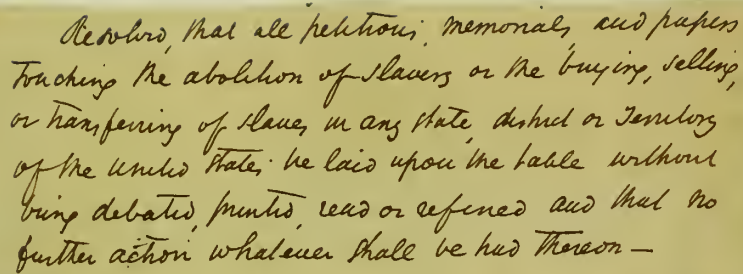 Resolved, that all petitions, memorials, and papers
touching the abolition of slavery or the buying, selling,
or transferring of slaves in any state, district or Territory
of the United States be laid upon the table without
being debated, printed, read or referred and that no
further action whatever shall be had thereon—